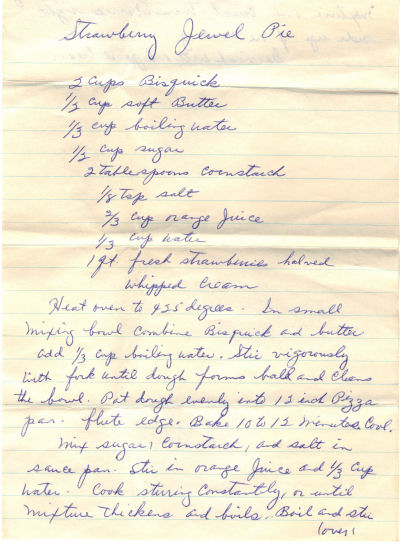 Strawberry Jewel Pie
2 cups Bisquick
1/2 cup soft Butter
1/3 cup boiling water
1/2 cup sugar
2 tablespoons cornstarch
1/8 tsp salt
2/3 cup orange Juice
1/3 cup water
1 qt. fresh strawberries halved
whipped cream
Heat oven to 425 degrees. In small
mixing bowl combine Bisquick ad butter
add 1/3 cup boiling water. Stir vigorously
with fork until dough forms ball and cleans
the bowl. Pat dough evenly into 12 inch Pizza
pan. flute edge. Bake 10 to 12 minutes. Cool.
Mix sugar, cornstarch, and salt in
sauce pan. Stir in orange Juice ad 1/3 cup
water. Cook stirring constantly, or until
mixture thickens and boils. Boil and stir
(over)